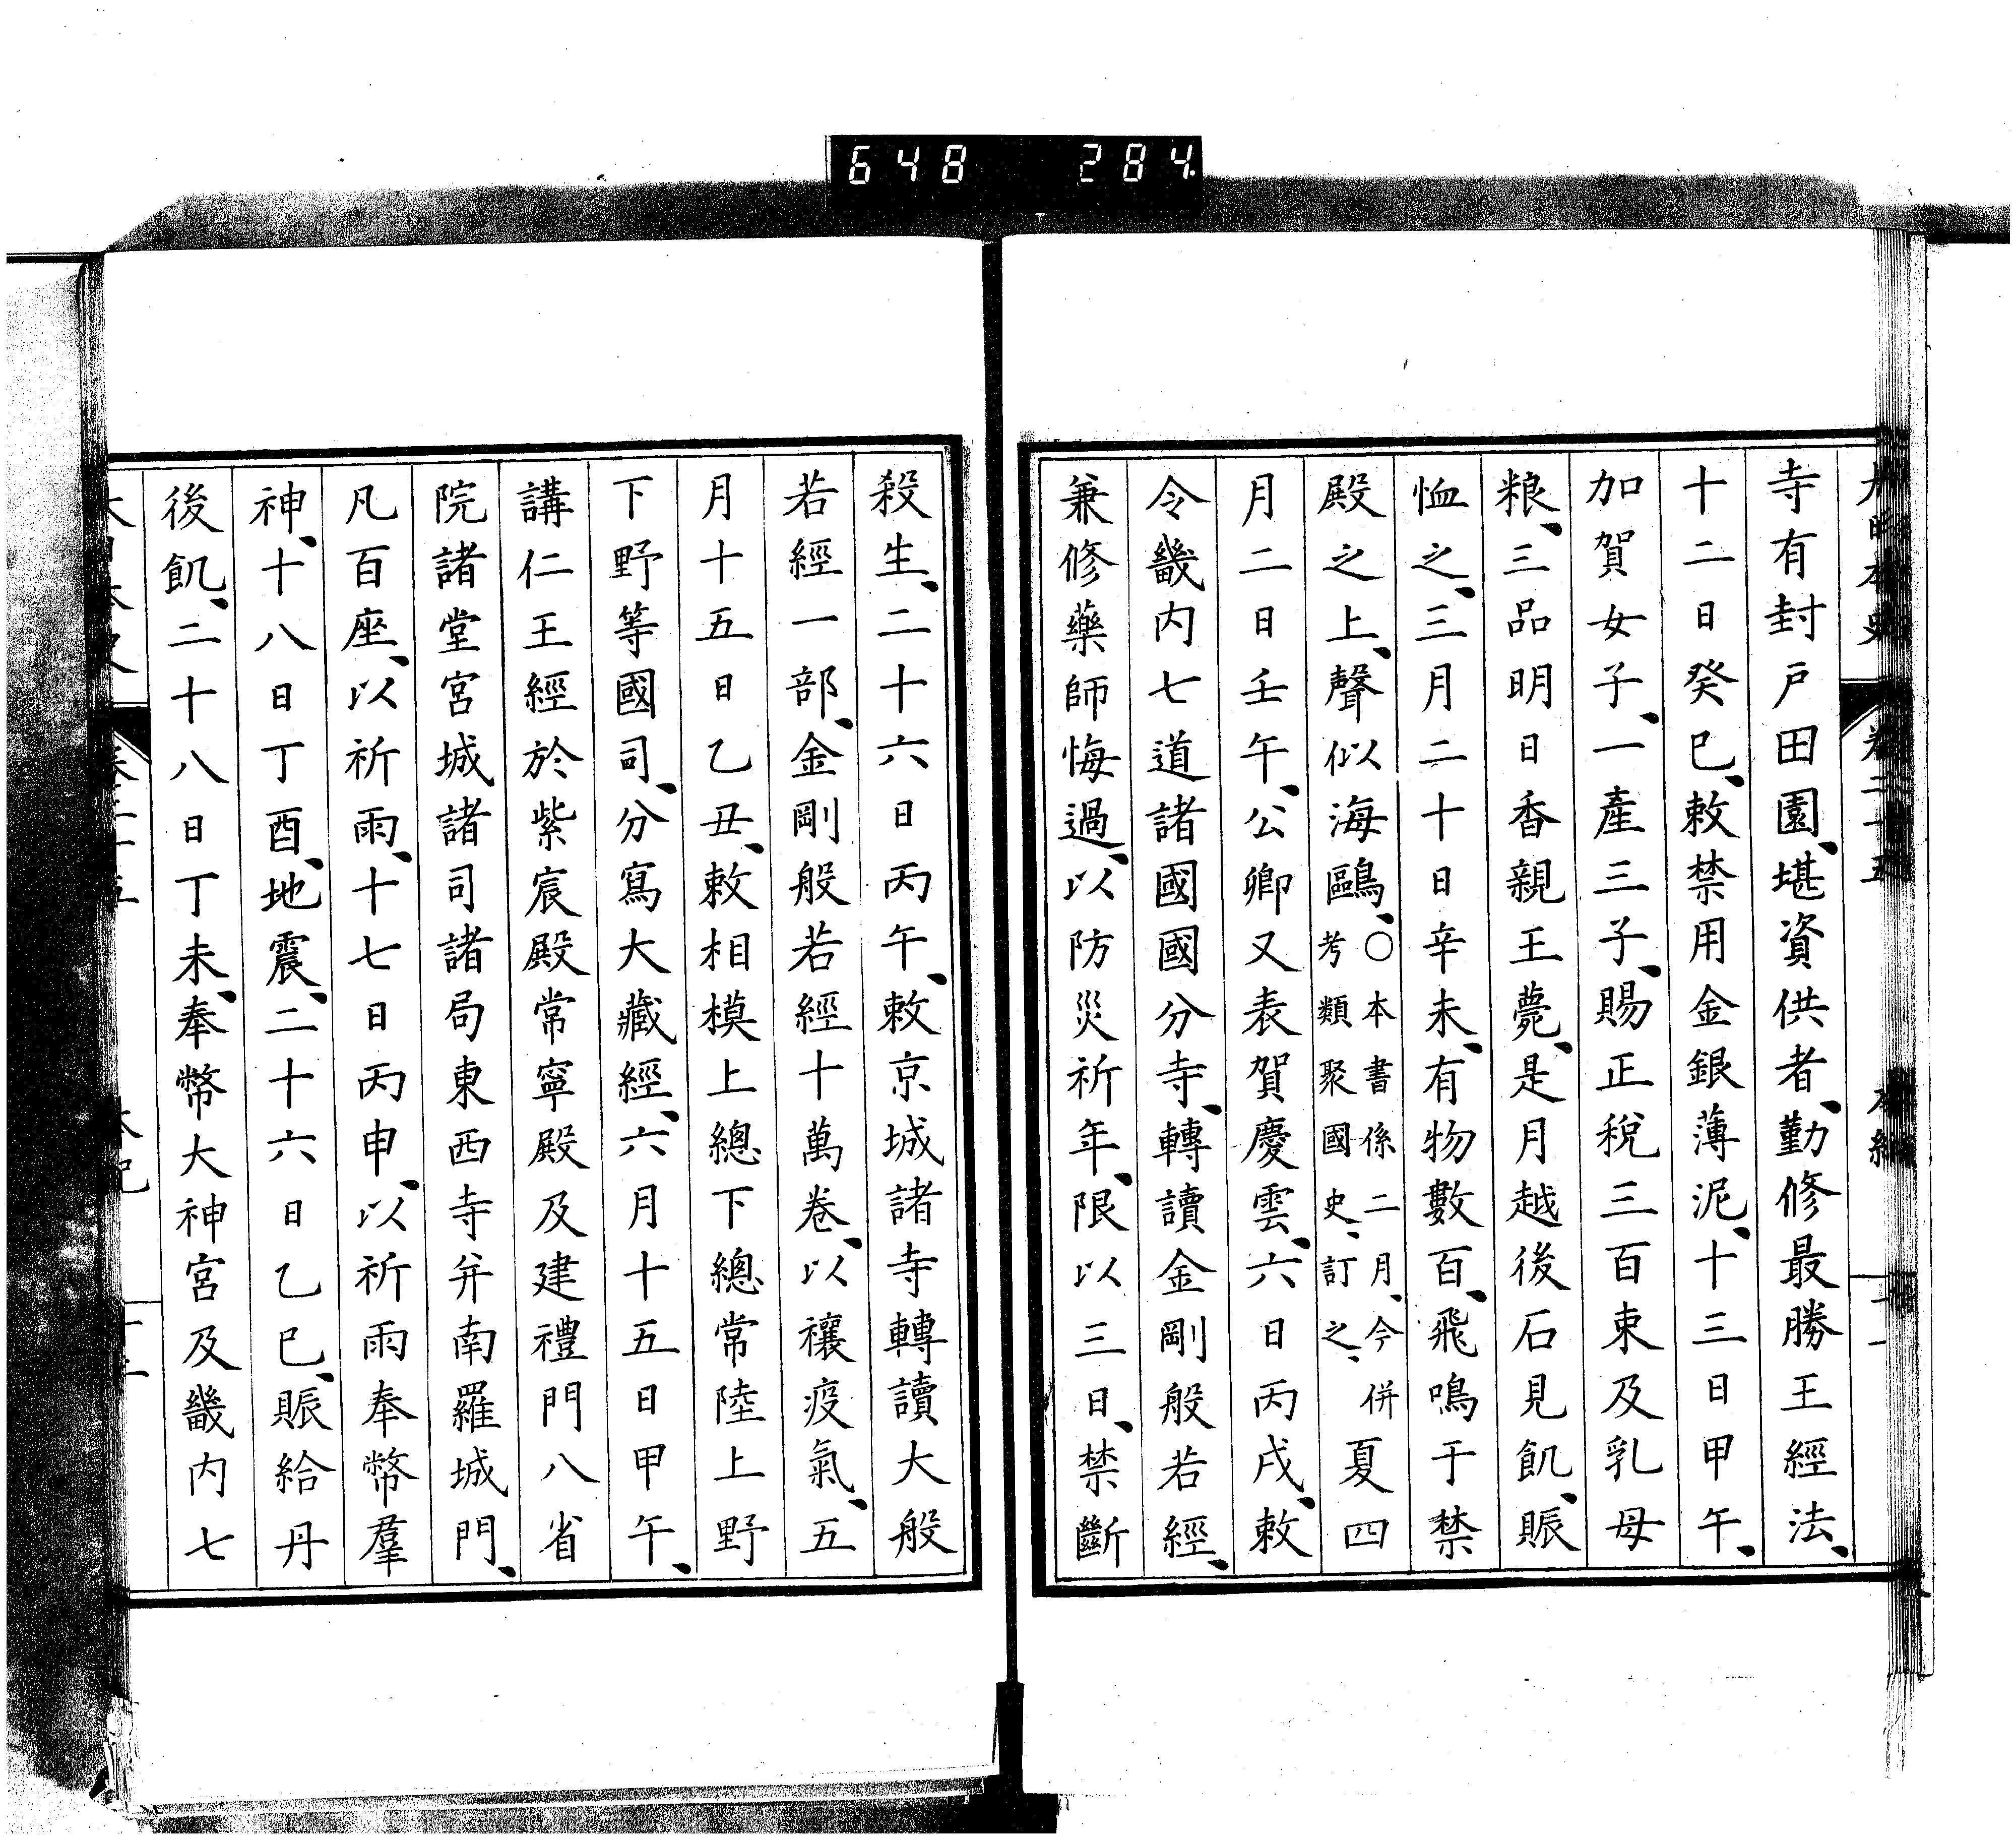 648 284
寺有封戸田園、堪資供者、勤修最勝王經法、
十二日癸巳、敕禁用金銀薄泥、十三日甲午、
加賀女子、一產三子、賜正稅三百束及乳母
粮、三品明日香親王薨、是月越後石見飢、賑
恤之、三月二十日辛未、有物數百、飛鳴于禁
殿之上、聲似海鷗、○本書係二月、今併
考類聚國史、訂之、夏四
月二日壬午、公卿又表賀慶雲、六日丙戌、敕
令畿内七道諸國國分寺、轉讀金剛般若經、
兼修藥師悔過、以防災祈年、限以三日、禁斷
殺生、二十六日丙午、敕京城諸寺轉讀大般
若經一部、金剛般若經十萬卷、以禳疫氣、五
月十五日乙丑、敕相模上總下總常陸上野
下野等國司、分寫大藏經、六月十五日甲午、
講仁王經於紫宸殿常寧殿及建禮門八省
院諸堂宮城諸司諸局東西寺并南羅城門、
凡百座、以祈雨、十七日丙申、以祈雨奉幣羣
神、十八日丁酉、地震、二十六日乙巳、賑給丹
後飢、二十八日丁未、奉幣大神宮及畿内七